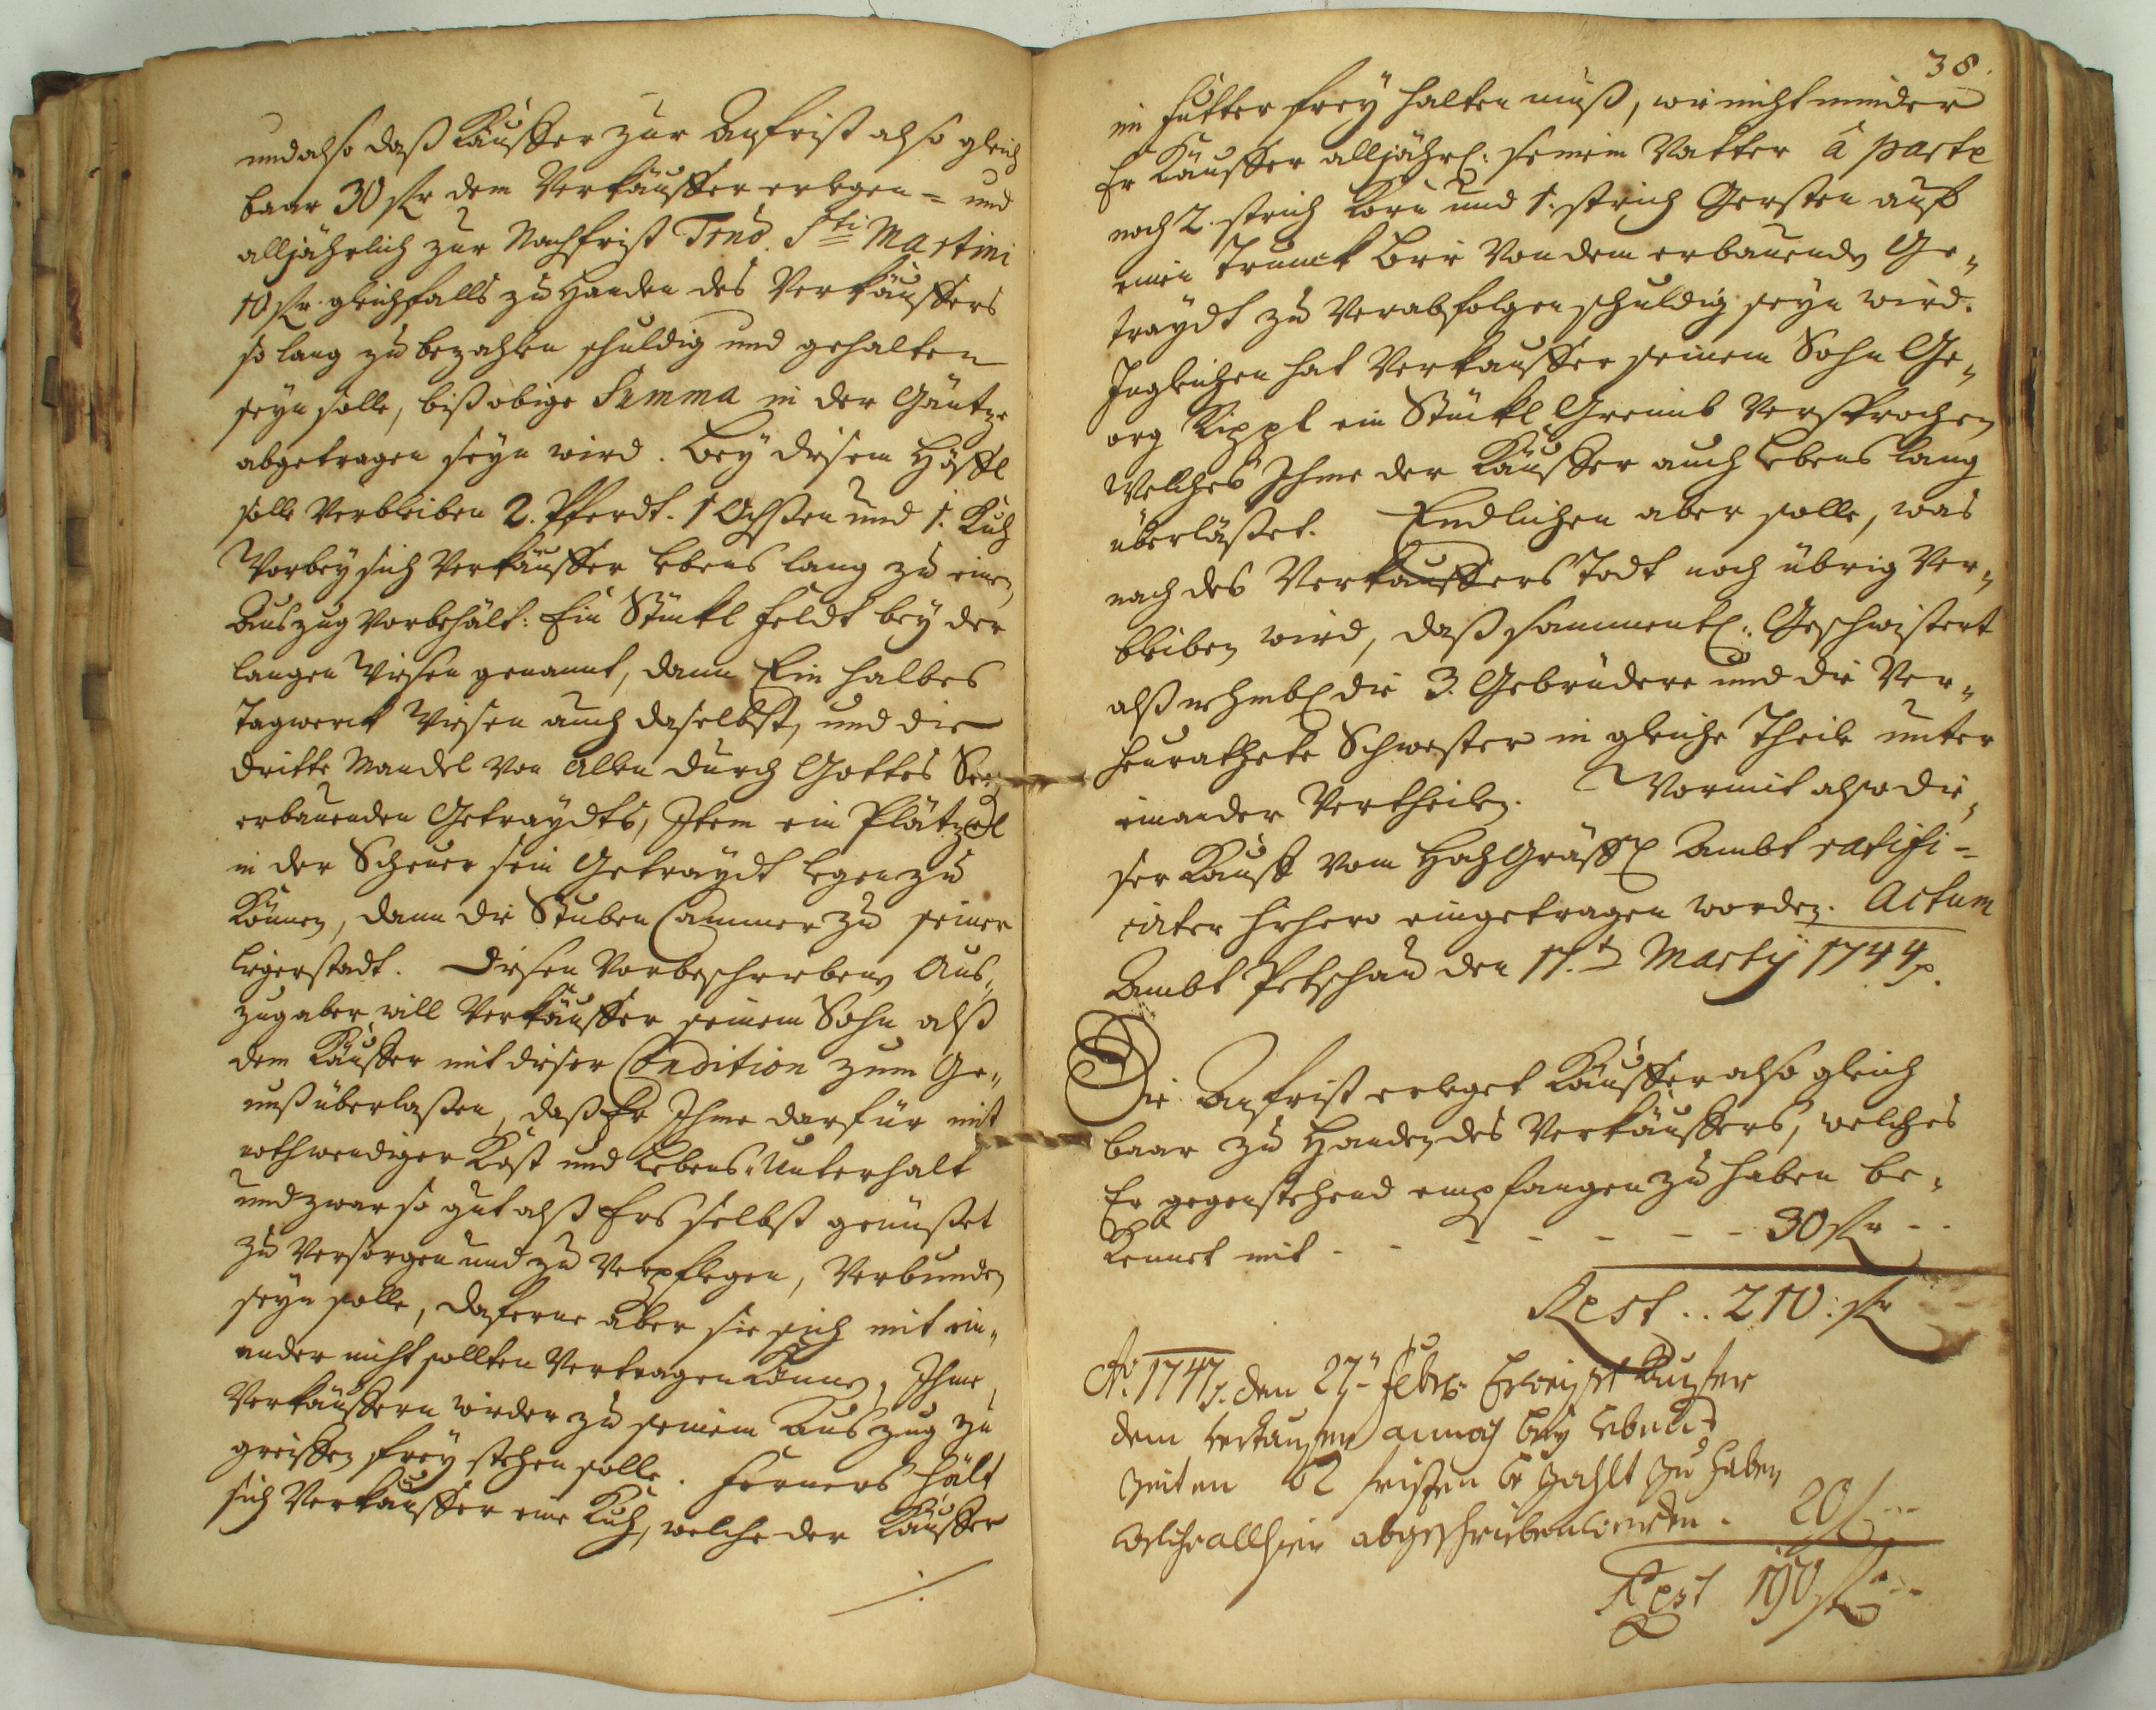 und also daß Käuffer zur Anfrist also gleich
baar 30 ßr dem Verkäuffer erlegen = und
alljährlich zur Nachfrist Trno. Sti Martini
10 ßr. gleichfalls zu Handen des Verkäuffers
so lang zu bezahlen schuldig und gehalten
seyn solle, biß obige Summa in der Gäntze
abgetragen seyn wird. Bey diesem Höffl
solle Verbleiben 2. Pferdt. 1 Ochßen und 1. Kuh
Worbey sich Verkäuffer lebens lang zu einen
Auszug vorbehält: Ein Stückl Feldt bey der
langen Wiesen genannt, dann Ein halbes
Tagwerck Wiesen auch daselbst, und die
dritte Mandel von Allen durch Gottes See:
erbauenden Getraydts, Item ein Plätzedl
in der Scheuer sein Getraydt legen zu
Können, dann die Stuben Cammer zu seiner
Liegerstadt. Diesen Vorbeschriebenen Aus„
zug aber will Verkäuffer seinem Sohn alß
dem Käuffer mit dieser Condition zum Ge„
nuß überlaßen, daß Er Ihme darfür mit
nothwendiger Kost und Lebens-Unterhalt
und zwar so gut alß Ers selbst genüßet
zu Versorgen und zu Verpflegen, Verbunden
seyn solle, daferne aber sie sich mit ein„
ander nicht sollten Vertragen Können, Ihme
Verkäuffern wieder zu seinem Auszug zu
greiffen frey stehen solle. Ferners hält
sich Verkäuffer eine Kuh, welche der Käuffer
./.
38.
im Futter frey halten muß, wie nicht minder
Er Käuffer alljährl: seinem Vatter à parte
noch 2. strich Korn und 1. strich Gersten auf
einen Trunck Bier von dem erbauenden Ge„
traydt zu Verabfolgen schuldig seyn wird.
Ingleichen hat Verkauffer seinem Sohn Ge„
org Kippl ein Stückl Greinb Versprochen
Welches Ihme der Käuffer auch lebens lang
überläßet. Endlichen aber solle, was
nach des Verkauffers Todt noch übrig Ver„
bleiben wird, daß sammentl: Geschwistert
alß nehmbl die 3. Gebrüdere und die Ver„
heurathete Schwester in gleiche Theile unter
einander Vertheilen. Wormit also die„
ser Kauff vom HochGräffl Ambt ratifi =
cirter hiehero eingetragen worden. Actum
Ambt Petschau den 17.t Martij 1744.
Die Anfrist erleget Käuffer also gleich
baar zu Handen des Verkäuffers, welches
Er gegenstehend empfangen zu haben be„
kennet mit - - - - - - - 30 ßr - -
Rest .. 210: ßr
Ao. 1747. den 27ten Febr: Erweiset Kauffer
dem Verkauffer annoch bey lebens
Zeiten 02 fristen bezahlt zu haben
Welche allhier abgeschrieben werden. 20 ß --
Rest 190 ß --